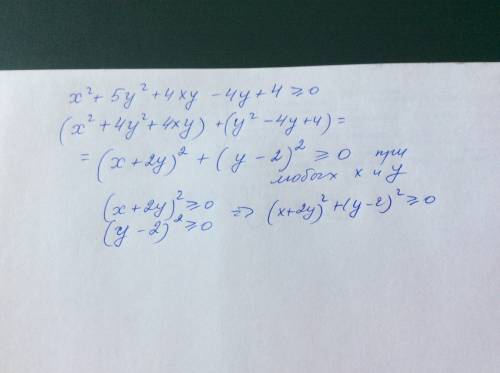 x² + 5y² + 4xy - 4y + 4 ≥ 0
(x² + 4y² + 4xy) + (y² - 4y + 4) =
= (x + 2y)² + (y - 2)² ≥ 0 при
любых x и y
(x + 2y)² ≥ 0 => (x+2y)² + (y-2)² ≥ 0
(y - 2)² ≥ 0